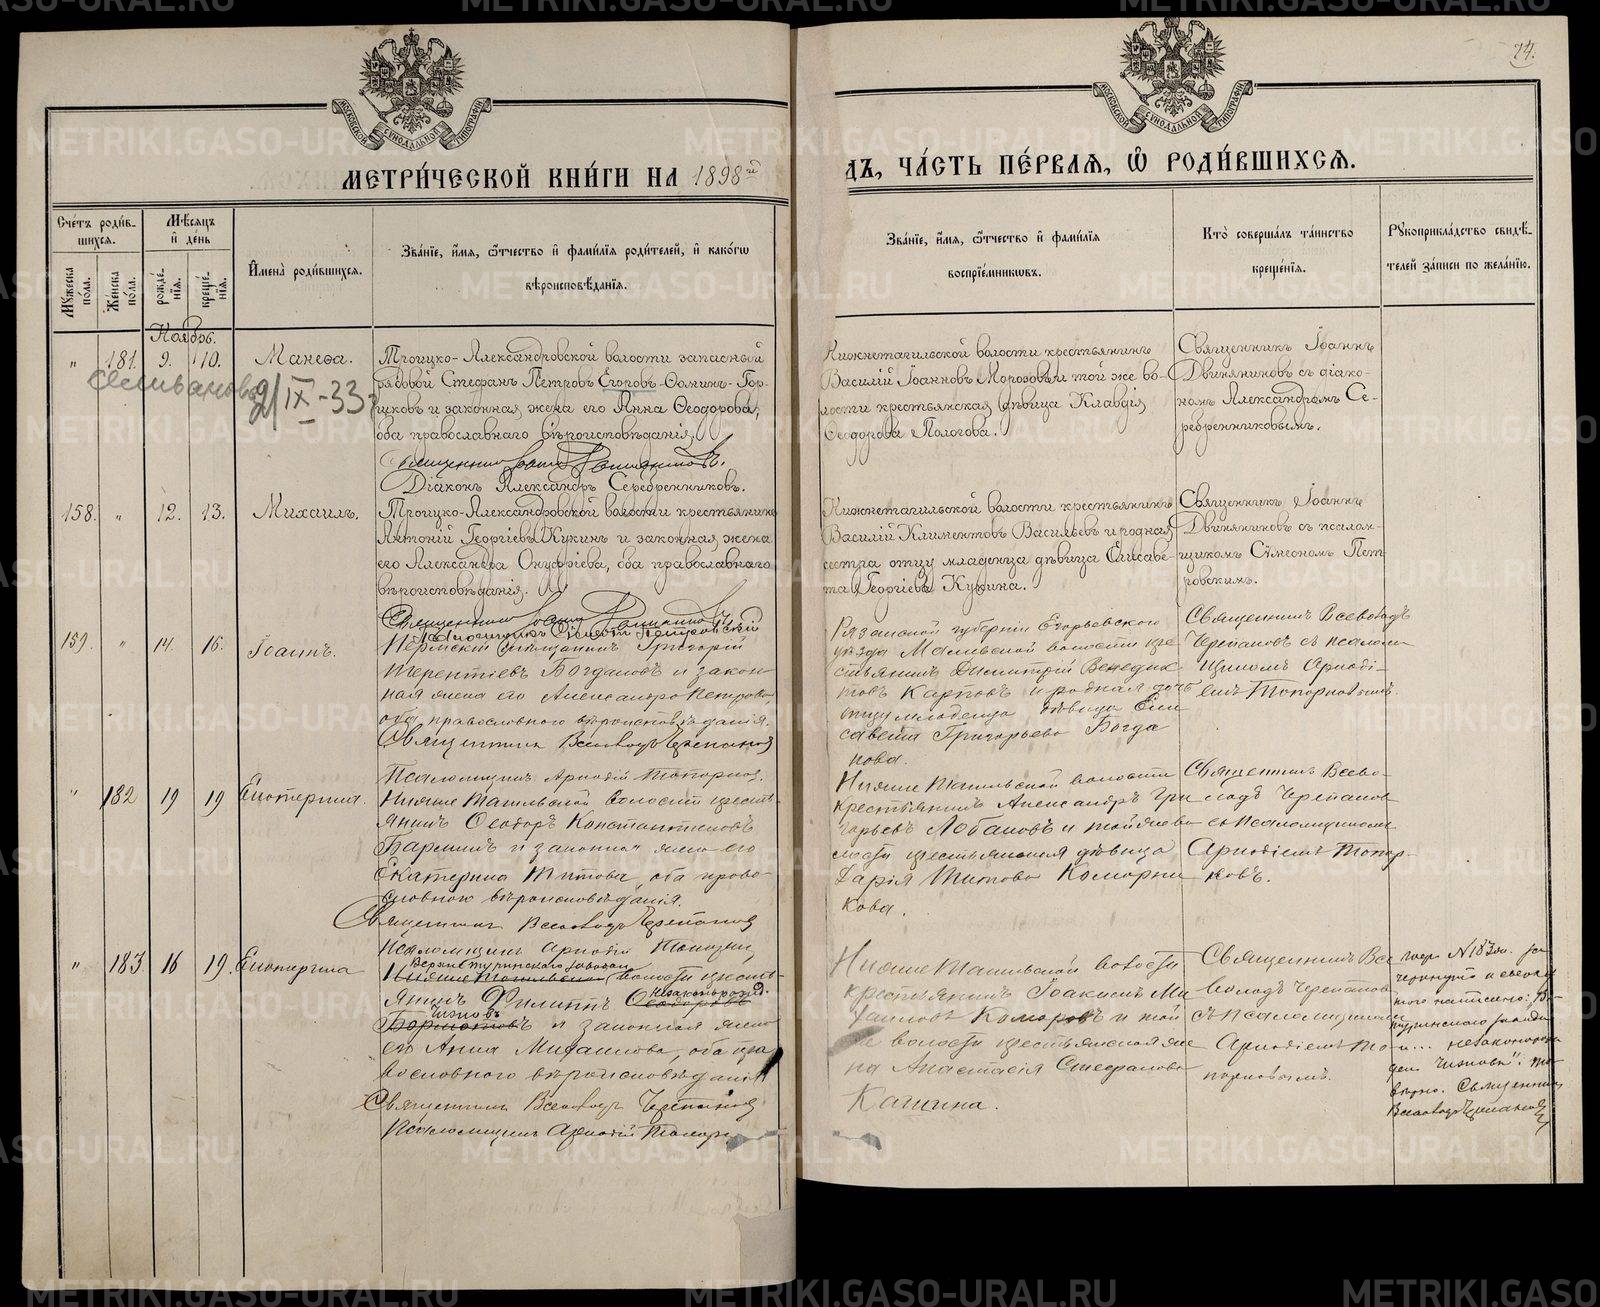 МЕТРИ́ЧЕСКОЙ КНИ́ГИ НА 1898й
ДЪ, ЧА́СТЬ ПЕ́РВАѦ, Ѡ҆ РОДИ́ВШИХСѦ.
24.
МОСКОВСКОЙ СѴНОДАЛЬНОЙ ТИПОГРАФІИ
МОСКОВСКОЙ СѴНОДАЛЬНОЙ ТИПОГРАФІИ
Сче́тъ роди́в-
шихсѧ.
Мѹ́жеска по́ла.
Же́нска по́ла.
Мѣ́сѧцъ
и҆ де́нь
рожде́-
нїѧ.
креще́-
нїѧ.
И҆мена̀ роди́вшихсѧ.
Зва́нїе, и҆́мѧ, ѻ҆́тчество и҆ фами́лїѧ роди́телей, и҆ како́гѡ
вѣроисповѣ́данїѧ.
Зва́нїе, и҆́мѧ, ѻ҆́тчество и҆ фами́лїѧ
воспрїе́мникѡвъ.
Кто̀ соверша́лъ та́инство
креще́нїѧ.
Рѹкоприкла́дство свидѣ́-
телей за́писи по жела́нїю.
Ноябрь.
" 181. 9. 10. Манеѳа.
Селиванова 9/IX-33
Троицко-Александровской волости запасный
рядовой Стефанъ Петровъ Егоровъ-Ѳоминъ-Гор-
шковъ и законная жена его Анна Ѳеодорова,
оба православнаго вѣроисповѣданія.
Священникъ Іоаннъ Двиняниновъ.
Діаконъ Александръ Серебренниковъ.
Нижнетагильской волости крестьянинъ
Василій Іоанновъ Морозовъ и той же во-
лости крестьянская дѣвица Клавдія
Ѳеодорова Пологова.
Священникъ Іоаннъ
Двиняниновъ съ діако-
номъ Александромъ Се-
ребренниковымъ.
158. " 12. 13. Михаилъ.
Троицко-Александровской волости крестьянинъ
Антоній Георгіевъ Кукинъ и законная жена
его Александра Онуфріева, оба православнаго
вѣроисповѣданія.
Священникъ Іоаннъ Двиняниновъ
Псаломщикъ Симеонъ Петровскій
Нижнетагильской волости крестьянинъ
Василій Климентовъ Васильевъ и родная
сестра отцу младенца дѣвица Елисаве-
та Георгіева Кукина.
Священникъ Іоаннъ
Двиняниновъ съ псалом-
щикомъ Сѵмеономъ Пет-
ровскимъ.
159. " 14. 16. Іоаннъ.
Пермскій мѣщанинъ Григорій
Терентіевъ Богдановъ и закон-
ная жена его Александра Петрова,
оба православного вѣроисповѣданія.
Священникъ Всеволодъ Черепановъ
Псаломщикъ Аркадій Топорковъ.
Рязанской губерніи Егорьевского
уѣзда Маливской волости кре-
стьянинъ Димитрій Венедик-
товъ Карповъ и родная дочь
отцу младенца, дѣвица Ели
савета Григорьева Богда
нова.
Священникъ Всеволодъ
Черепановъ съ псалом
щикомъ Аркаді-
емъ Топорковымъ.
" 182 19 19 Екатерина.
Нижне Тагильской волости крестья-
янинъ Ѳеодоръ Константиновъ
и законная жена его
Екатерина Титова, оба право-
славного вѣроисповѣданія.
Священникъ Всеволодъ Черепановъ
Псаломщикъ Аркадій
Нижне Тагильской волости
крестьянинъ Александръ Гри
горьевъ Лобановъ и той же во
лости крестьянская дѣвица
Дарія Титова Комарни
кова.
Священникъ Всево-
лодъ Черепанов
съ псаломщикомъ
Аркадіемъ Топор-
ковъ.
" 183 16 19 Екатерина
Верхне туринского завода
Нижне Тагильской волости кресть-
янинъ Филиппъ
незаконорожд.
Чижовъ
и законная жена
его Анна Михаилова, оба пра
вославного вѣроисповѣданія
Священникъ Всеволодъ Черепановъ
Псаломщикъ Аркадій Топорк
Нижне Тагильской волости
крестьянинъ Іоакимъ Ми
хаиловъ Комаровъ и той
же волости крестьянская же
на Анастасія Стефанова
Кашина.
Священникъ Все
володъ Черепанов
съ псаломщикомъ
Аркадіемъ То-
порковымъ.
№ 183 за
черкнуто и сверху
того написано: В-
туринского завода
и... незаконорож
ден Чижовъ"; то
вѣрно. Священникъ
Всеволодъ Черепановъ
METRIKI.GASO-URAL.RU